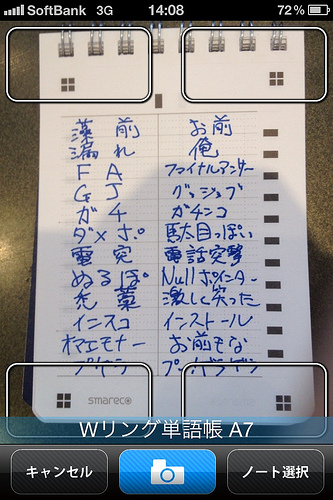 SoftBank 3G 14:08 72%
藻前 お前
漏れ 俺
FA ファイナルアンサー
GJ グッジョブ
ガチ ガチンコ
ダメポ 駄目っぽい
電 電話突撃
ぬるぽ Nullポインター
禿藁 激しく笑った
インスコ インストール
オマエモナー お前もな
smareco
Wリング単語帳 A7
キャンセル ノート選択